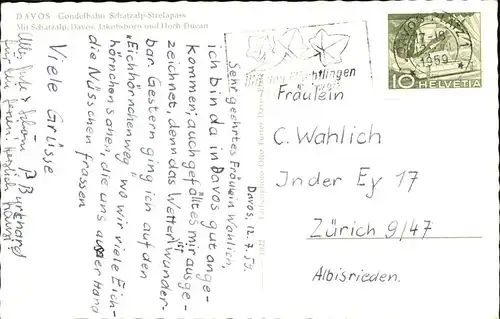 DAVOS Gondelbahn Schatzalp-Strelapass
Mit Schatzalp, Davos, Jakobshorn und Hoch Ducan
Davos, 12. 7. 59.
Sehr geehrtes Fräulein Wahlich,
ich bin da in Davos gut ange-
kommen; auch gefällt es mir ausge-
zeichnet, denn das Wetter ist wunder-
bar. Gestern ging ich auf den
"Eichhörnchenweg" wo wir viele Eich-
hörnchen sahen, die uns aus der Hand
die Nüsschen frassen.
Viele Grüsse
B. Burkhard
DAVOS PLATZ 1
1959
10 HELVETIA
Flüchtlingen
Fräulein
C. Wahlich
In der Ey 17
Zürich 9/47
Albisrieden.